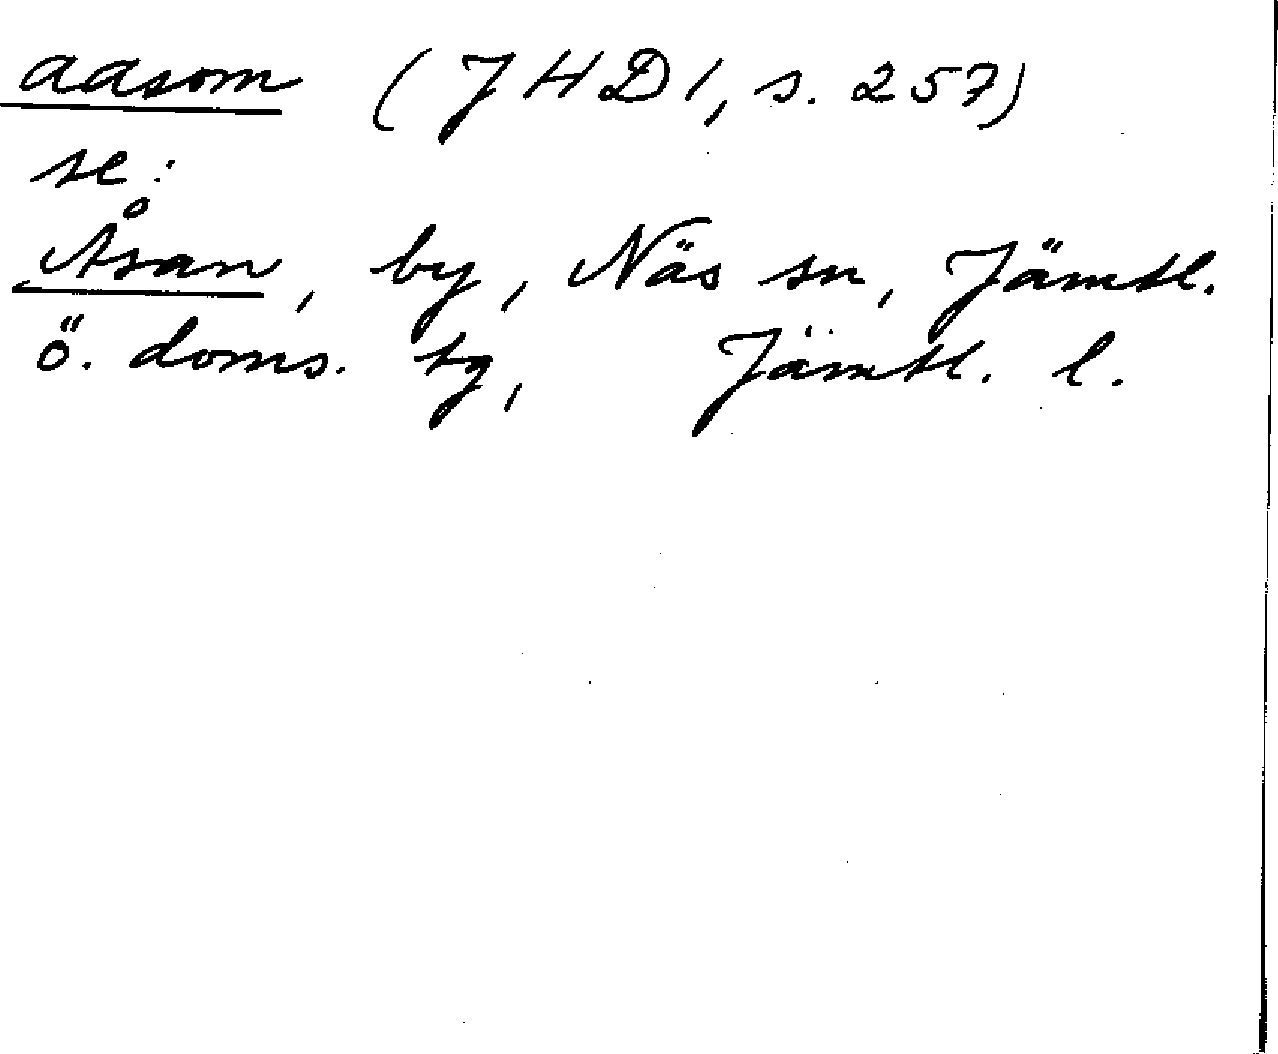 aasom (JHD1, s. 257)
se:
Åsan, by, Näs sn, Jämtl.
ö. doms. tg, Jämtl. l.